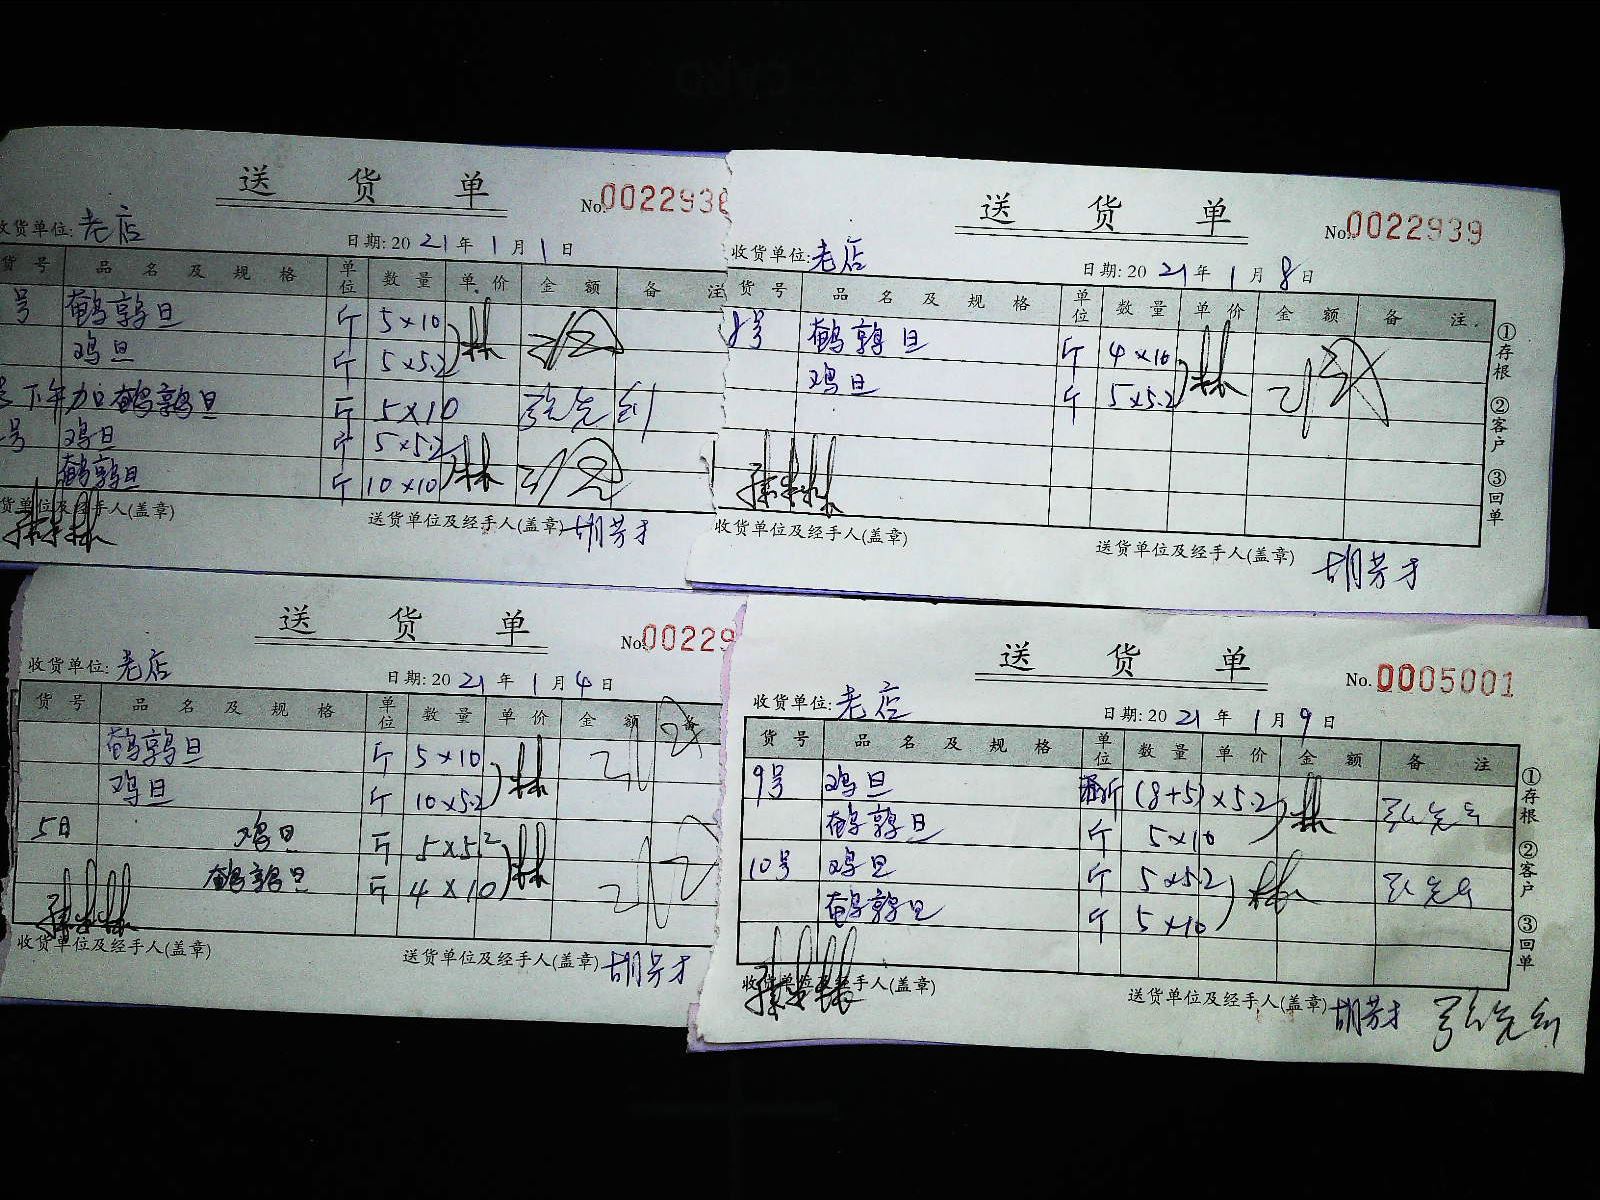 送 货 单
No.0022938
收货单位:老店
日期:2021年1月1日
货号 品名及规格 单位 数量 单价 金额 备注
号 鹌鹑旦 斤 5×10
鸡旦 斤 5×5.2
下午加鹌鹑旦 斤 5×10
号 鸡旦 斤 5×5.2
鹌鹑旦 斤 10×10
货单位及经手人(盖章) 送货单位及经手人(盖章) 胡芳才
送 货 单
No.0022939
收货单位:老店
日期:2021年1月8日
货号 品名及规格 单位 数量 单价 金额 备注
8号 鹌鹑旦 斤 4×10
鸡旦 斤 5×5.2
收货单位及经手人(盖章) 送货单位及经手人(盖章) 胡芳才
①存根 ②客户 ③回单
送 货 单
No.00229
收货单位:老店
日期:2021年1月4日
货号 品名及规格 单位 数量 单价 金额 备
鹌鹑旦 斤 5×10
鸡旦 斤 10×5.2
5日 鸡旦 斤 5×5.2
鹌鹑旦 斤 4×10
收货单位及经手人(盖章) 送货单位及经手人(盖章) 胡芳才
送 货 单
No.0005001
收货单位:老店
日期:2021年1月9日
货号 品名及规格 单位 数量 单价 金额 备注
9号 鸡旦 斤 (8+5)×5.2
鹌鹑旦 斤 5×10
10号 鸡旦 斤 5×5.2
鹌鹑旦 斤 5×10
收货单位及经手人(盖章) 送货单位及经手人(盖章) 胡芳才
①存根 ②客户 ③回单